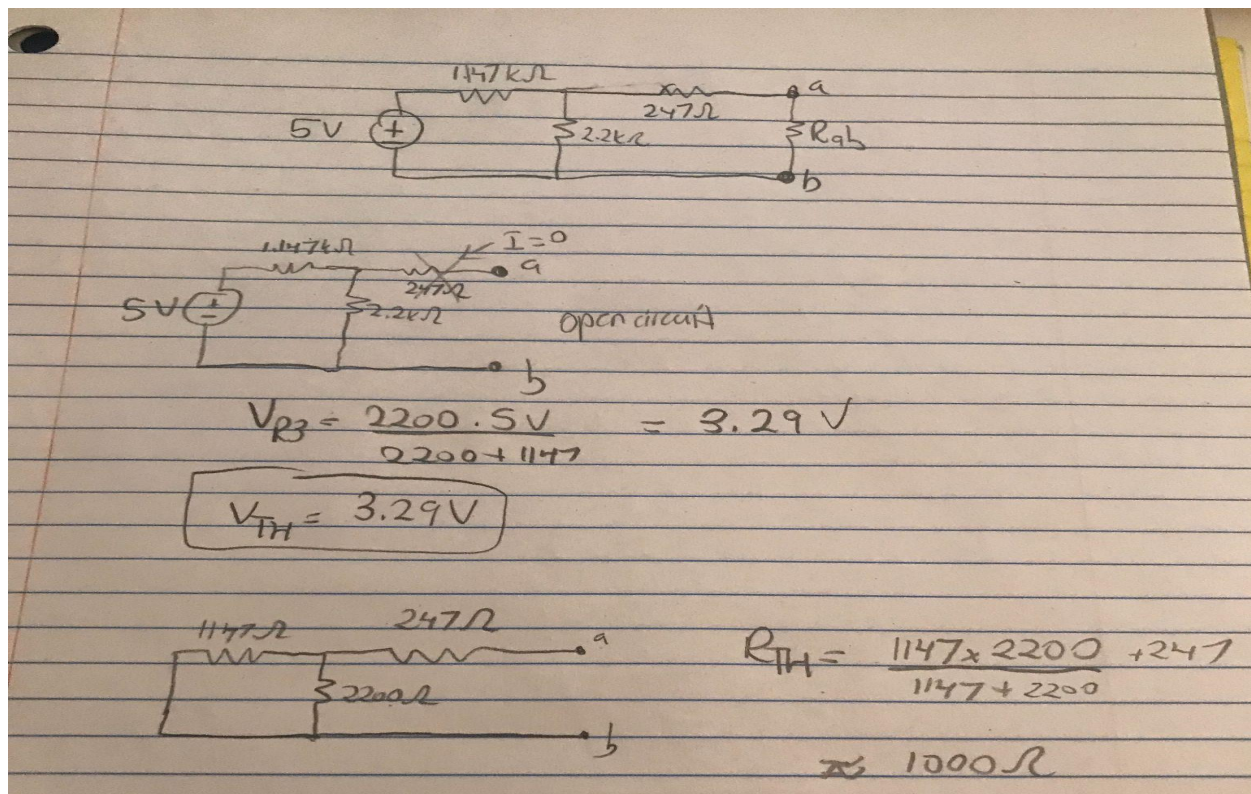 1.147kΩ
247Ω
a
5V
+
2.2kΩ
Rab
b
I=0
1.147kΩ
a
247Ω
5V
±
2.2kΩ
open circuit
b
VR3 = 2200 . 5V / 2200 + 1147 = 3.29 V
VTH = 3.29V
1147Ω
247Ω
a
2200Ω
b
RTH = 1147 x 2200 / 1147 + 2200 + 247
≈ 1000Ω